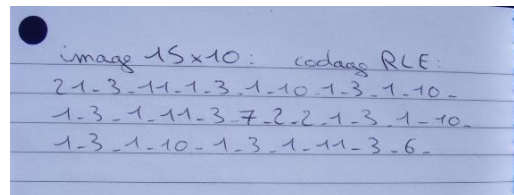 image 15x10 : codage RLE :
21-3-11-1-3-1-10-1-3-1-10-
1-3-1-11-3-7-2-2-1-3-1-10-
1-3-1-10-1-3-1-11-3-6-